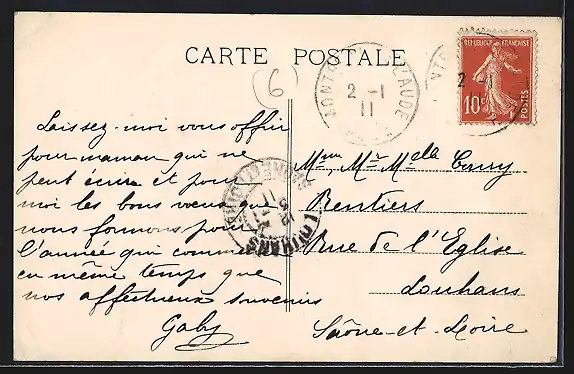 CARTE POSTALE
6
2 -1
11
REPUBLIQUE FRANÇAISE
10c
POSTES
2 -1
11
Laissez-moi vous offrir
pour maman qui ne
peut écrire et pour
moi les bons voeux que
nous formons pour
l'année qui commence
en même temps que
nos affectueux souvenirs
Gaby
LOUHANS
Mme, Mr Melle
Rentiers
Rue de l'Eglise
Louhans
Saône-et-Loire